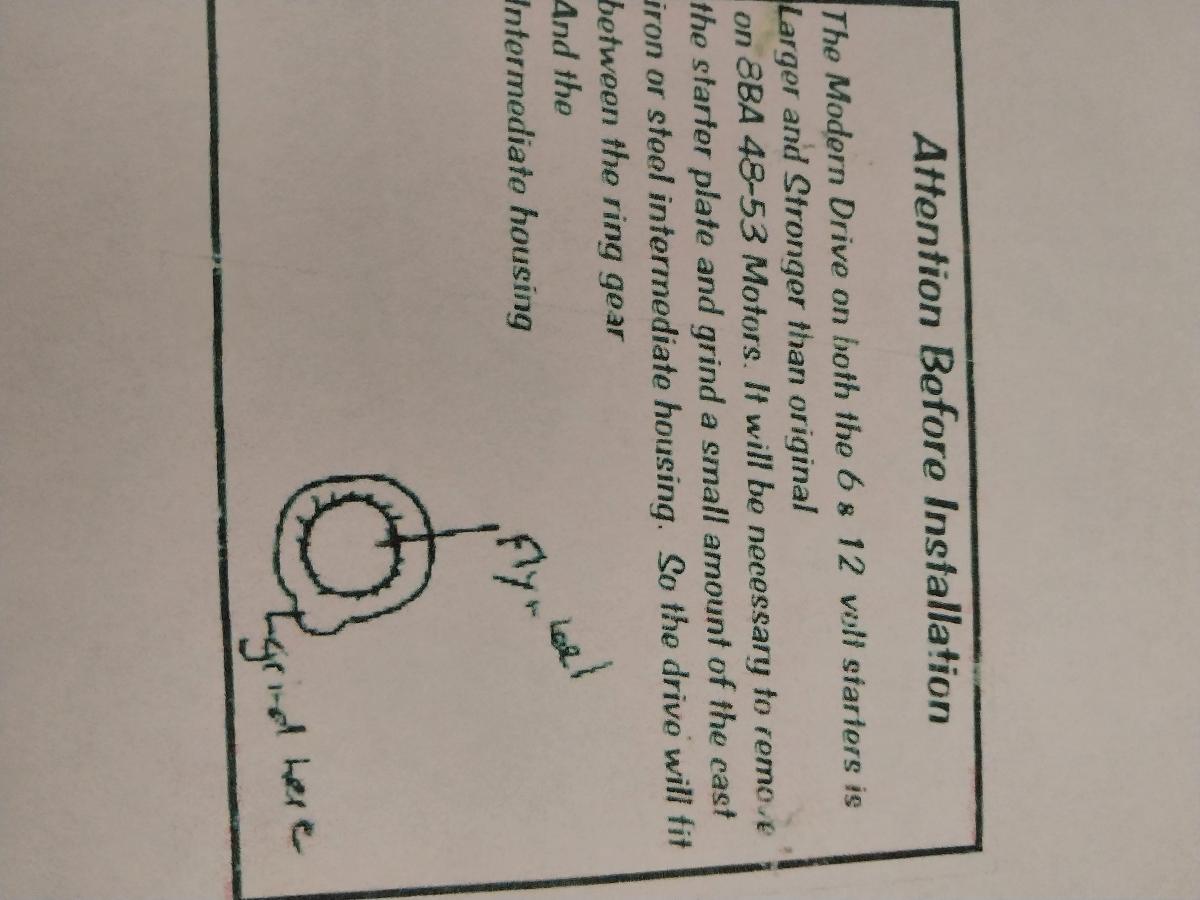 Attention Before Installation
The Modern Drive on both the 6 & 12 volt starters is
Larger and Stronger than original
on 8BA 48-53 Motors. It will be necessary to remove
the starter plate and grind a small amount of the cast
iron or steel intermediate housing. So the drive will fit
between the ring gear
And the
Intermediate housing
Flywheel
grind here